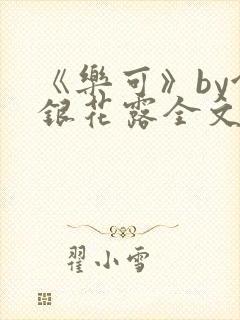 《樂可》by
銀花露全文
翟小雪